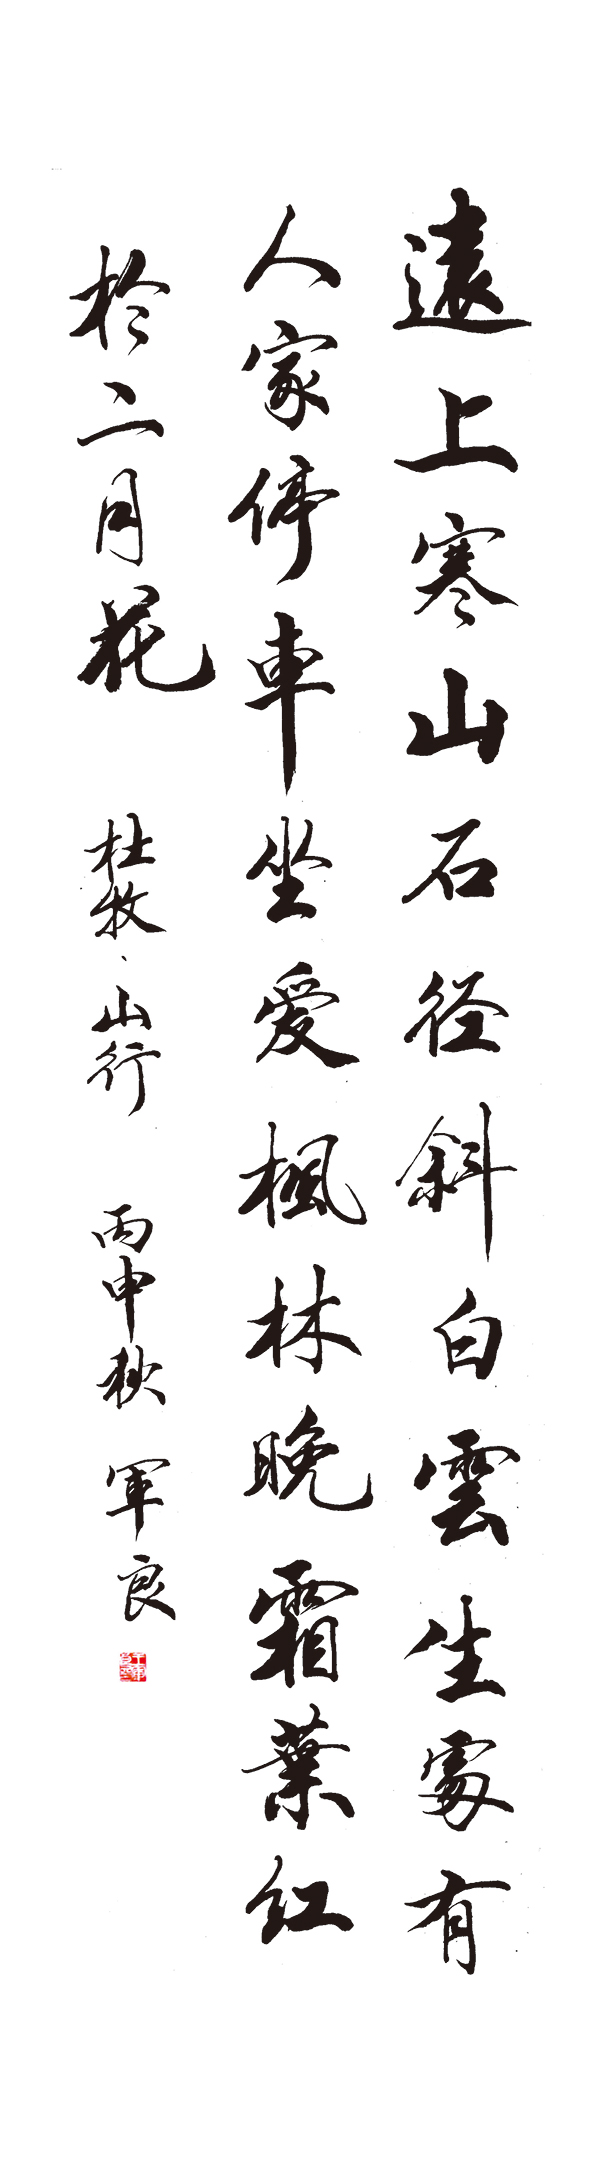 遠上寒山石径斜白雲生處有
人家停車坐爱楓林晚霜葉红
於二月花 杜牧·山行 丙申秋 軍良